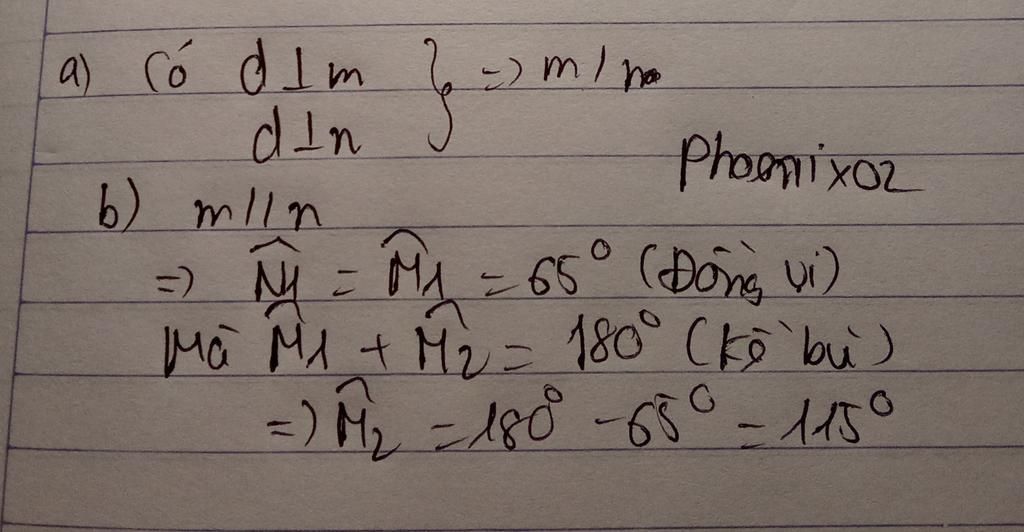 a) Có d⊥m } => m / n
d⊥n
Phoenix02
b) m//n
=> N̂1 = M̂1 = 65° (Đồng vị)
Mà M̂1 + M̂2 = 180° (kề bù)
=> M̂2 = 180° - 65° = 115°